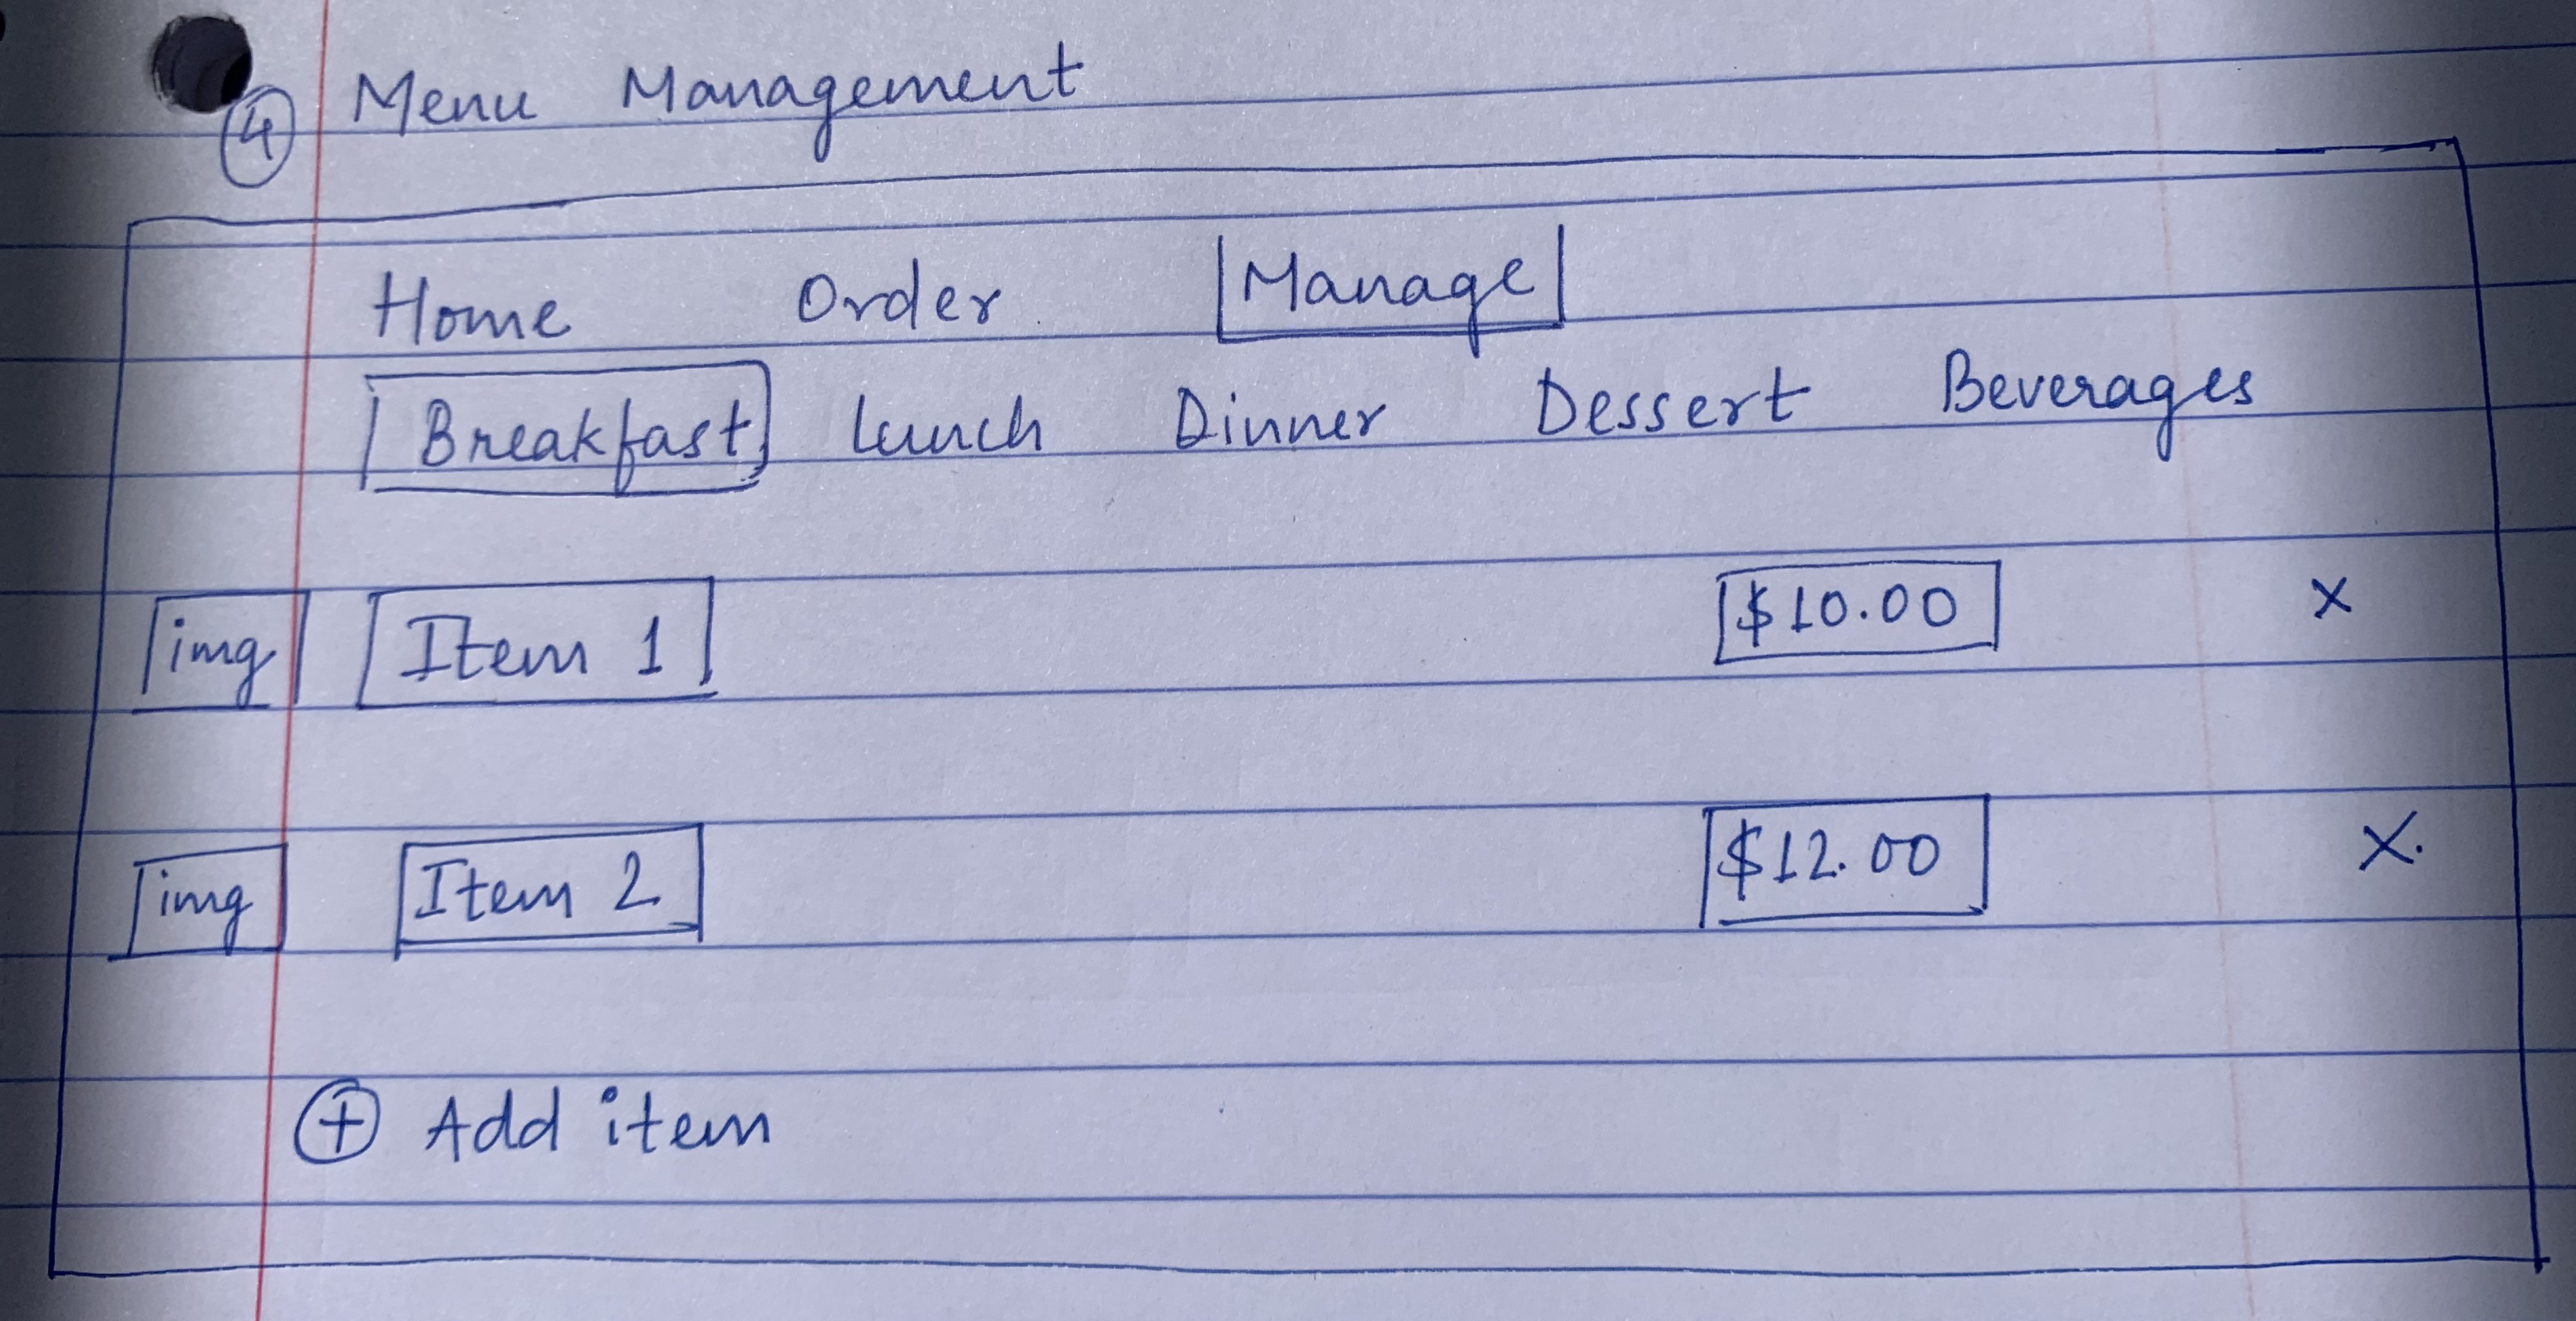 ④ Menu Management
Home Order Manage
Breakfast Lunch Dinner Dessert Beverages
img Item 1 $10.00 x
img Item 2 $12.00 X.
⊕ Add item